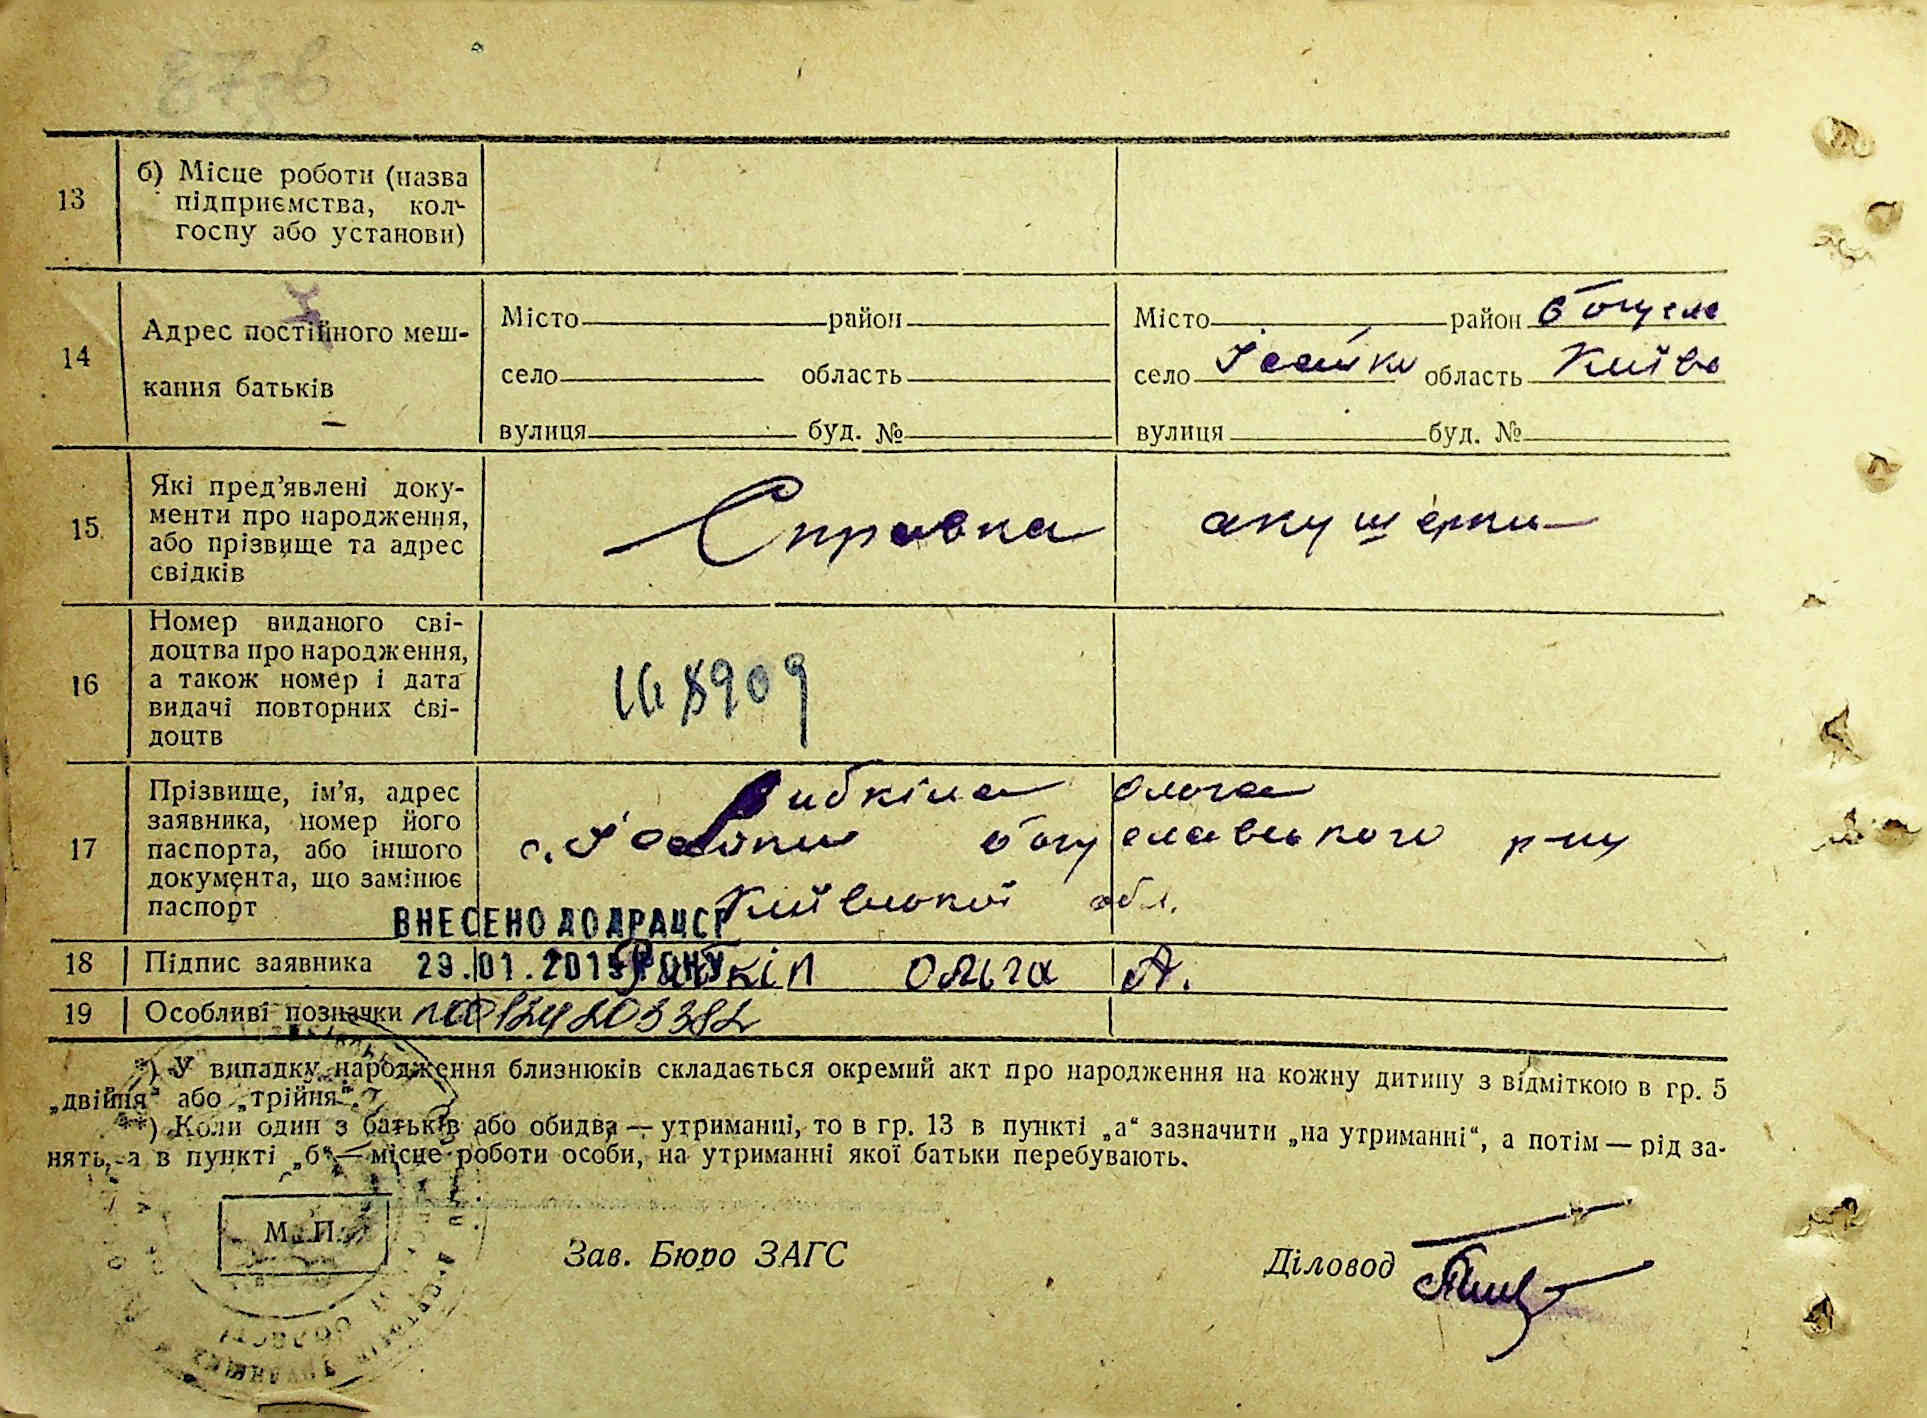 13
б) Місце роботи (назва
підприємства, кол-
госпу або установи)
14
Адрес постійного меш-
кання батьків
Місто район
село область
вулиця буд. №
Місто район Богусла
село Ісайки область Київс
вулиця буд. №
15
Які пред’явлені доку-
менти про народження,
або прізвище та адрес
свідків
Справка акушерки
16
Номер виданого сві-
доцтва про народження,
а також номер і дата
видачі повторних сві-
доцтв
8909
17
Прізвище, ім’я, адрес
заявника, номер його
паспорта, або іншого
документа, що замінює
паспорт
Ольга
с. Ісайки Богуславського р-ну
Київської обл.
ВНЕСЕНО ДО ДРАЦСГ
18
Підпис заявника
29.01.201 РОКУ
Ольга А.
19
Особливі позначки
*) У випадку народження близнюків складається окремий акт про народження на кожну дитину з відміткою в гр. 5
„двійня“ або „трійня“.
**) Коли один з батьків або обидва — утриманці, то в гр. 13 в пункті „а“ зазначити „на утриманні“, а потім — рід за-
нять, а в пункті „б“ — місце роботи особи, на утриманні якої батьки перебувають.
М. П.
Зав. Бюро ЗАГС
Діловод